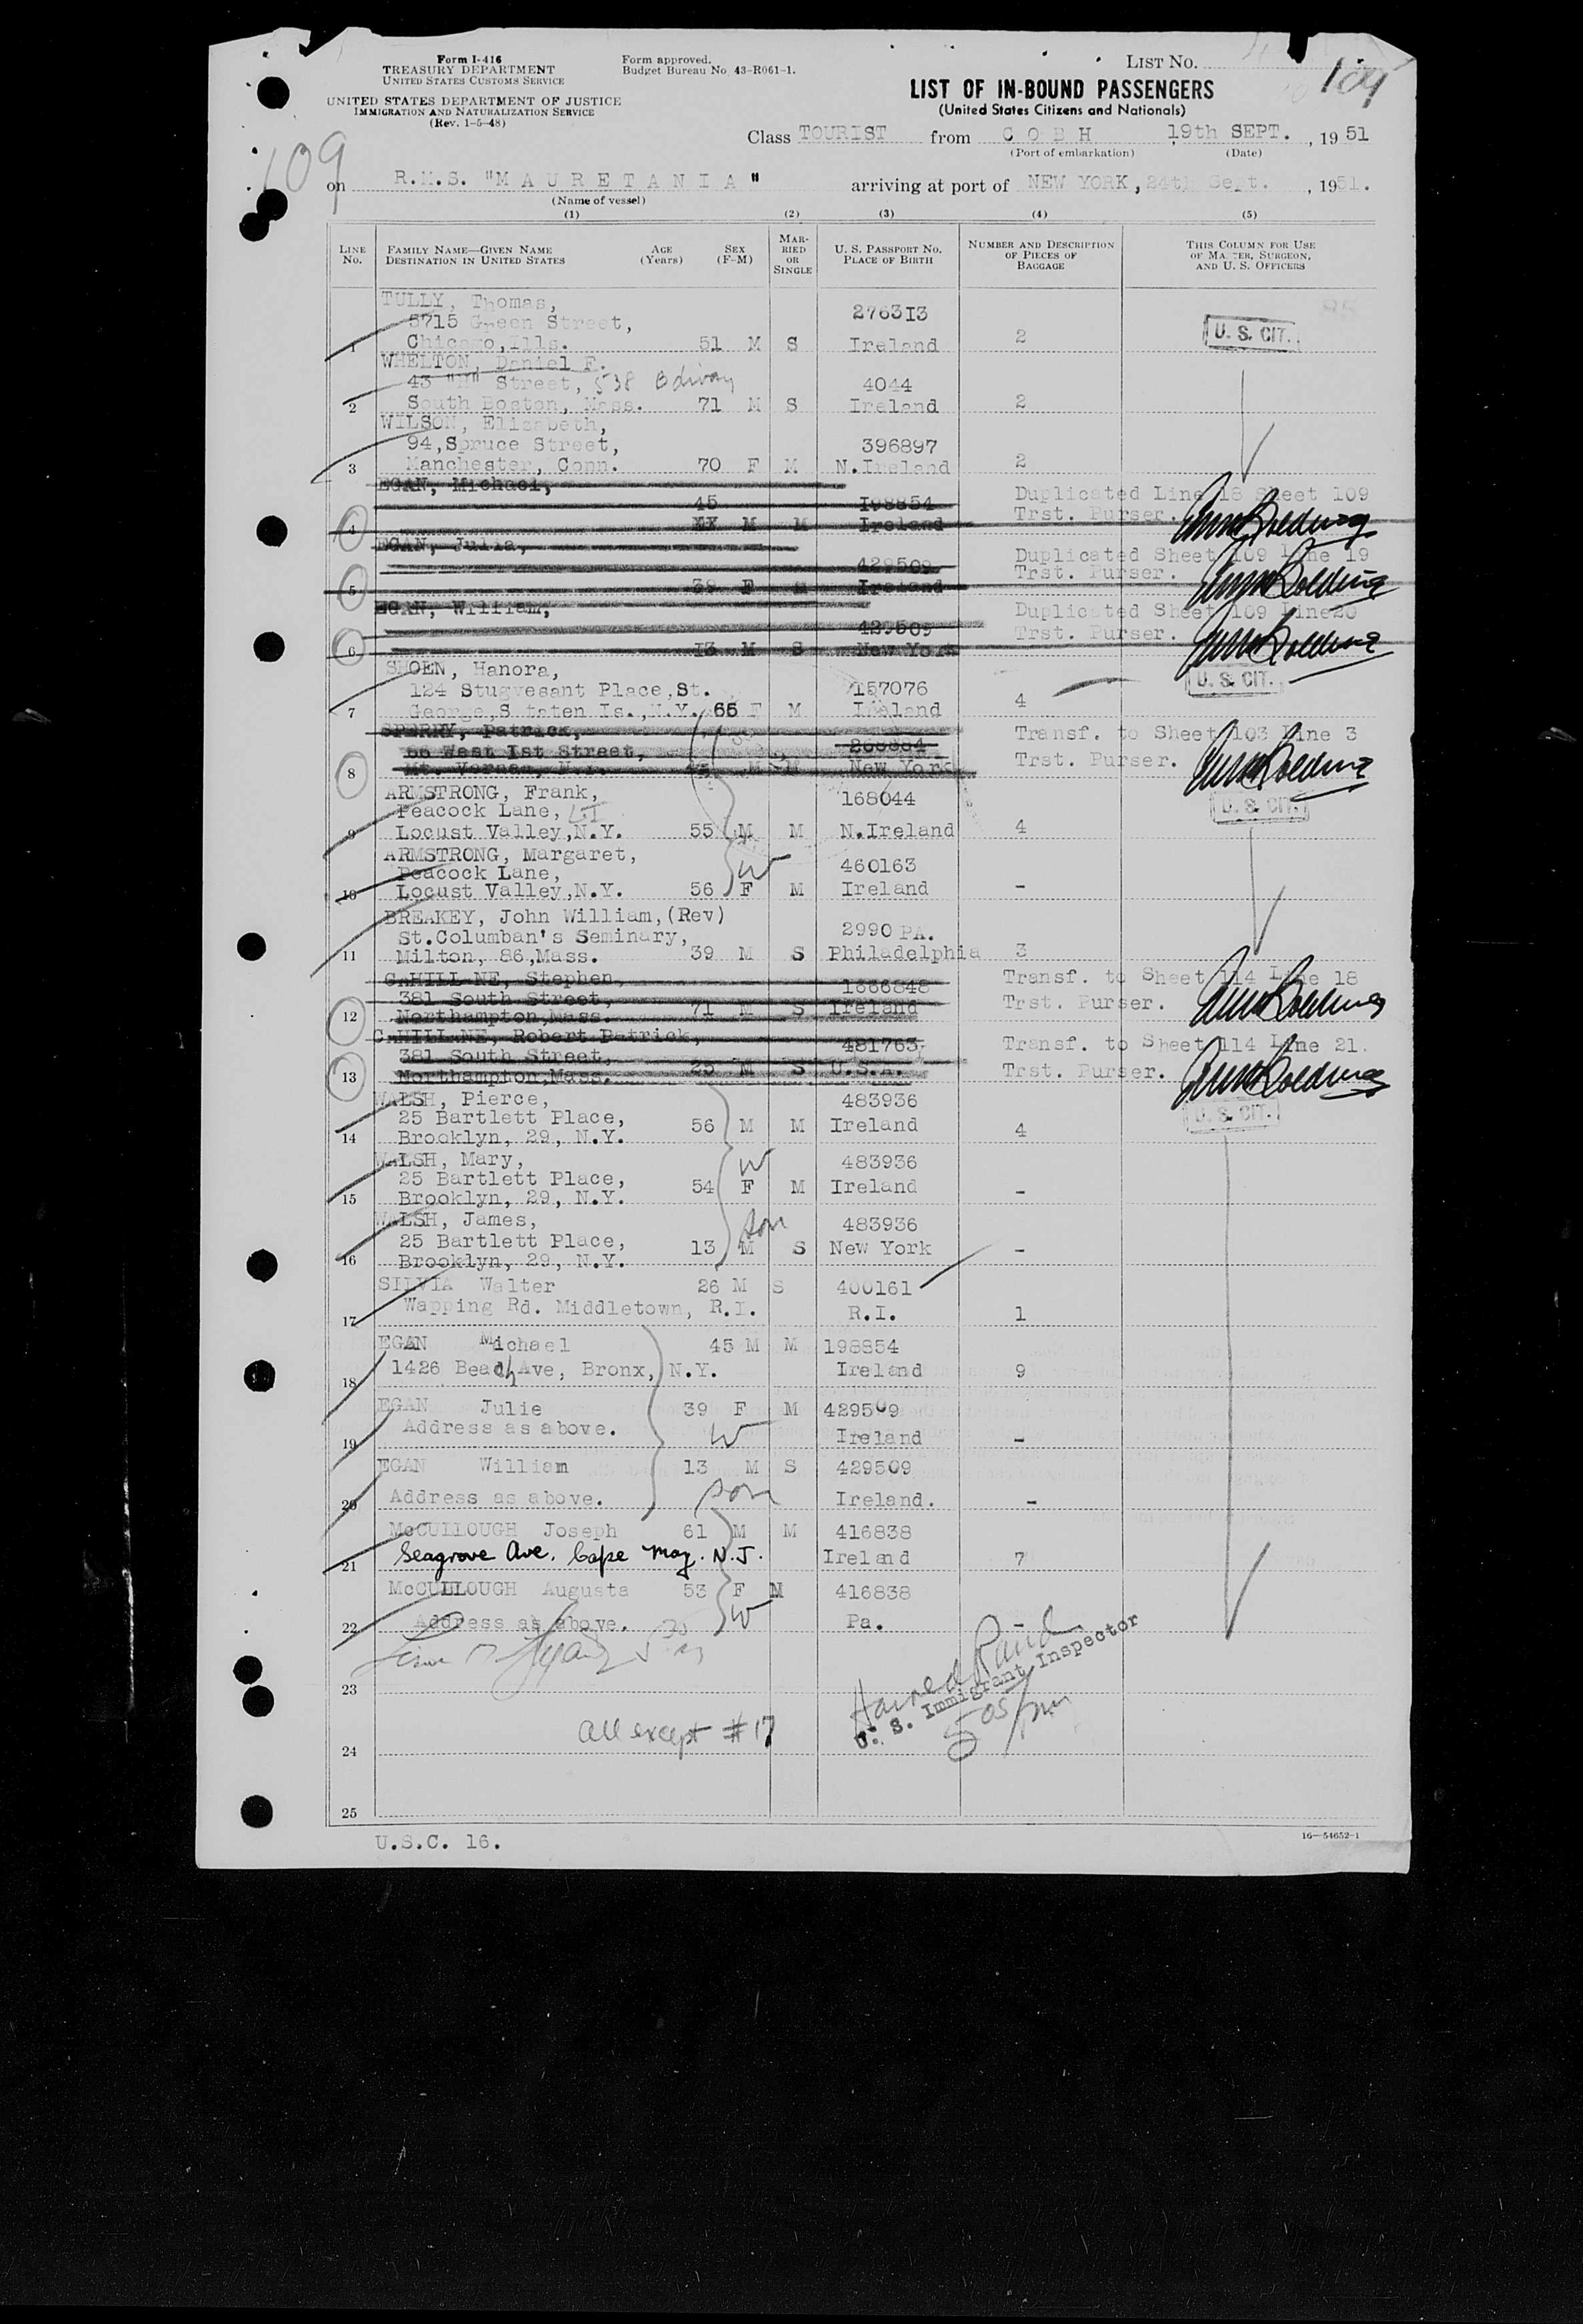 Form I-416
TREASURY DEPARTMENT
UNITED STATES CUSTOMS SERVICE
UNITED STATES DEPARTMENT OF JUSTICE
IMMIGRATION AND NATURALIZATION SERVICE
(Rev. 1-5-48)
Form approved.
Budget Bureau No. 43-R061-1.
LIST NO.
109
LIST OF IN-BOUND PASSENGERS
(United States Citizens and Nationals)
Class TOURIST from C O B H 19th SEPT., 1951
(Port of embarkation) (Date)
109
on R.M.S. "M A U R E T A N I A" arriving at port of NEW YORK, 24th Sept., 1951.
(Name of vessel)
(1) (2) (3) (4) (5)
LINE No. FAMILY NAME—GIVEN NAME DESTINATION IN UNITED STATES AGE (Years) SEX (F-M) MARRIED OR SINGLE U. S. PASSPORT NO. PLACE OF BIRTH NUMBER AND DESCRIPTION OF PIECES OF BAGGAGE THIS COLUMN FOR USE OF MASTER, SURGEON, AND U. S. OFFICERS
TULLY, Thomas,
5715 Green Street, 276313
1 Chicago, Ills. 51 M S Ireland 2 U. S. CIT.
WHELTON, Daniel F.
43 "H" Street, 538 Bdway 4044
2 South Boston, Mass. 71 M S Ireland 2
WILSON, Elizabeth,
94, Spruce Street, 396897
3 Manchester, Conn. 70 F M N.Ireland 2
EGAN, Michael, Duplicated Line 18 Sheet 109
45 198854 Trst. Purser.
4 XX M M Ireland
EGAN, Julia, Duplicated Sheet 109 Line 19
429509 Trst. Purser.
5 39 F M Ireland
EGAN, William, Duplicated Sheet 109 Line20
429509 Trst. Purser.
6 13 M S New York
SHOEN, Hanora, U. S. CIT.
124 Stugvesant Place, St. 157076
7 George, S.taten Is., N.Y. 65 F M Ireland 4
SPERRY, Patrick, Transf. to Sheet 103 Line 3
66 West Ist Street, 268884 Trst. Purser.
8 Mt. Vernan, N.Y. 45 M M New York
ARMSTRONG, Frank, 168044 U. S. CIT.
Peacock Lane, LI
9 Locust Valley, N.Y. 55 M M N.Ireland 4
ARMSTRONG, Margaret,
Peacock Lane, W 460163
10 Locust Valley, N.Y. 56 F M Ireland -
BREAKEY, John William, (Rev)
St.Columban's Seminary, 2990 PA.
11 Milton, 86, Mass. 39 M S Philadelphia 3
CAHILLANE, Stephen, Transf. to Sheet 114 Line 18
381 South Street, 1666848 Trst. Purser.
12 Northampton, Mass. 71 M S Ireland
CAHILLANE, Robert Patrick, Transf. to Sheet 114 Line 21.
381 South Street, 481763 Trst. Purser.
13 Northampton, Mass. 25 M S U.S.A.
WALSH, Pierce, 483936 U. S. CIT.
25 Bartlett Place, 56 M M Ireland 4
14 Brooklyn, 29, N.Y.
WALSH, Mary, W 483936
25 Bartlett Place, 54 F M Ireland -
15 Brooklyn, 29, N.Y.
WALSH, James, son 483936
25 Bartlett Place, 13 M S New York -
16 Brooklyn, 29, N.Y.
SILVIA Walter 26 M S 400161
17 Wapping Rd. Middletown, R.I. R.I. 1
EGAN Michael 45 M M 198854
18 1426 Beach Ave, Bronx, N.Y. Ireland 9
EGAN Julie 39 F M 429509
19 Address as above. W Ireland -
EGAN William 13 M S 429509
20 Address as above. son Ireland. -
McCULLOUGH Joseph 61 M M 416838
21 Seagrove Ave. Cape May. N.J. Ireland 7
McCULLOUGH Augusta 53 F M 416838
22 Address as above. W Pa. -
U. S. Immigrant Inspector
23
505 pm
all except #17
24
25
U.S.C. 16.
16—54652-1